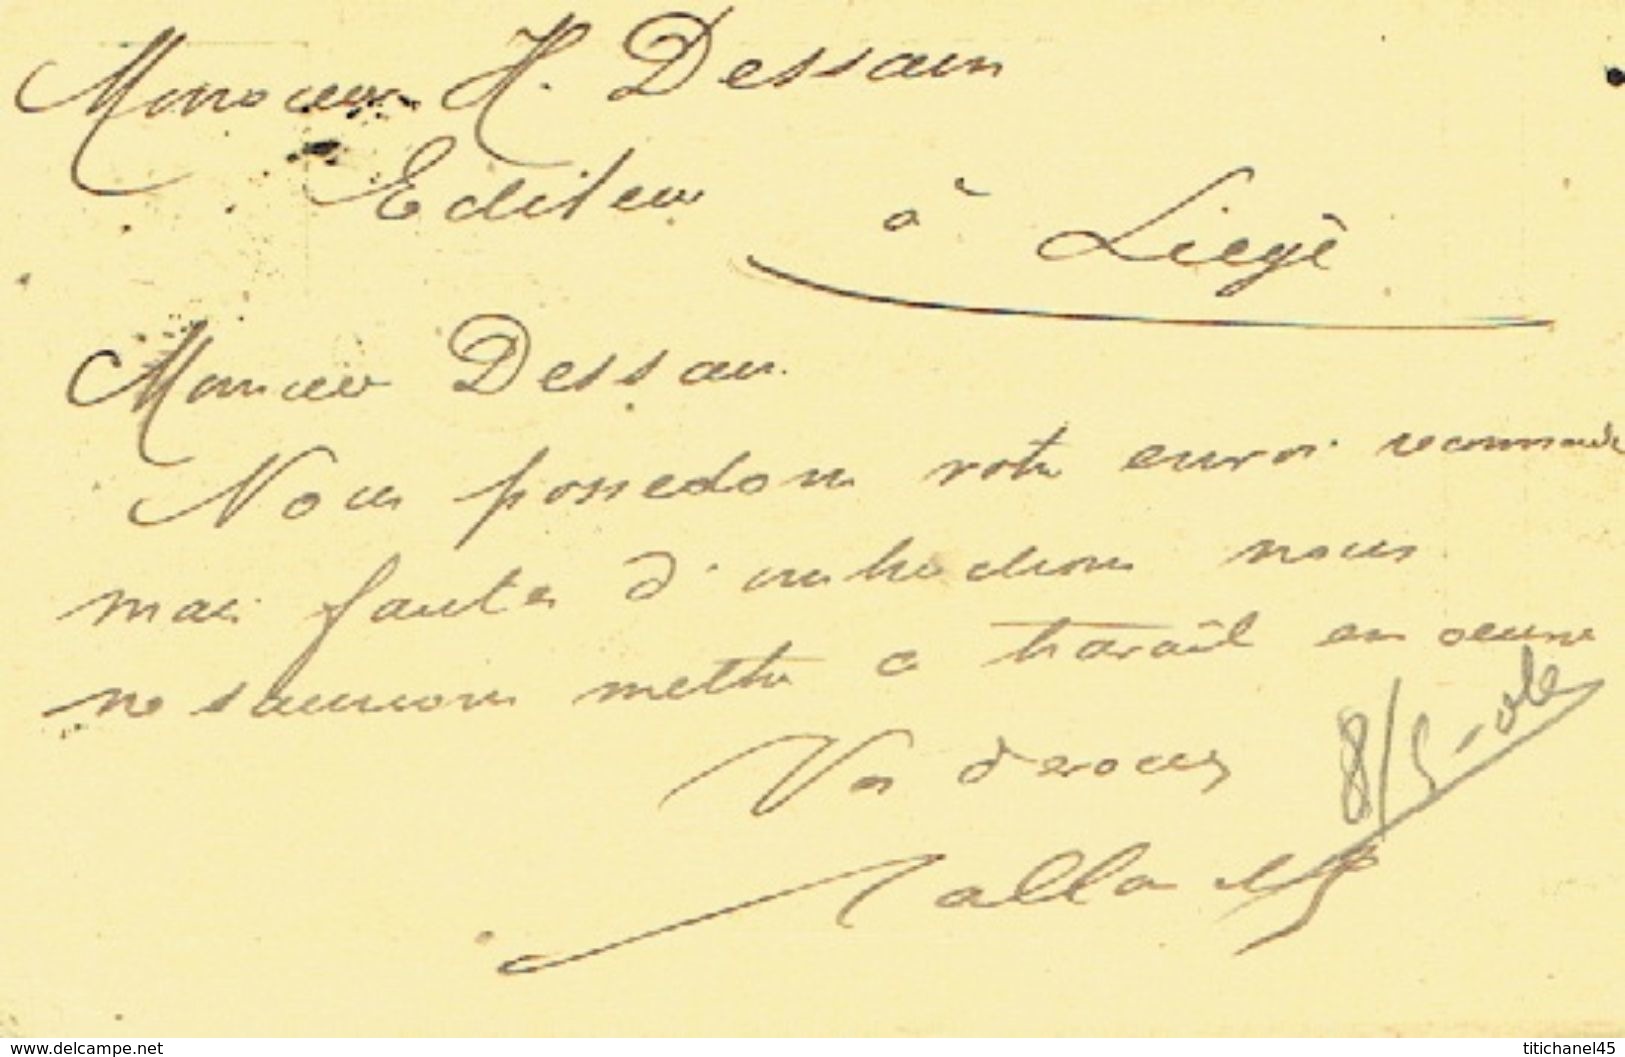 Monsieur H. Dessain
Editeur à Liège
Monsieur Dessain
Nous possedons votre envoi recommandé
mais fautes d'instructions nous
ne saurions mettre a travail en oeuvre
Vos devoués
8/5-
www.delcampe.net
titichanel45